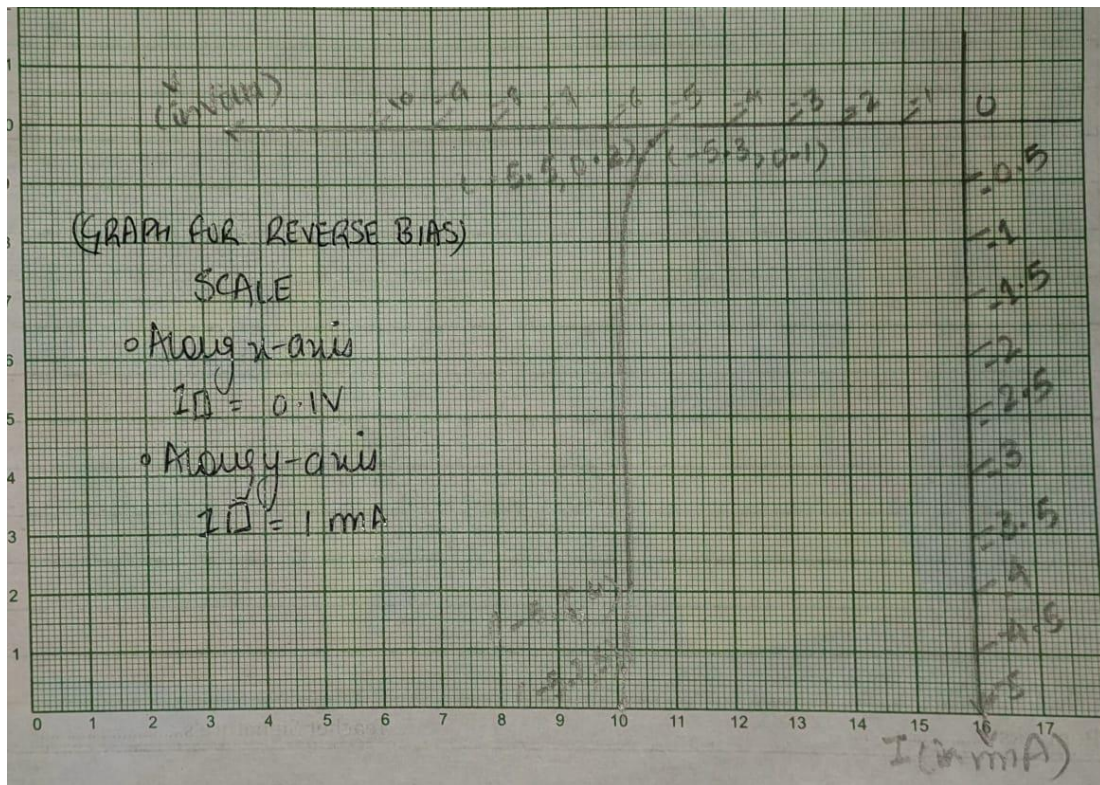 (in volt)
-9 -8 -7 -6 -5 -4 -3 -2 -1 0
(-5.3, 0.1)
-0.5
-1
-1.5
-2
-2.5
-3
-3.5
-4
-4.5
-5
(GRAPH FOR REVERSE BIAS)
SCALE
Along x-axis
1□ = 0.1V
Along y-axis
1□ = 1 mA
8
7
6
5
4
3
2
1
0 1 2 3 4 5 6 7 8 9 10 11 12 13 14 15 16 17
I (in mA)